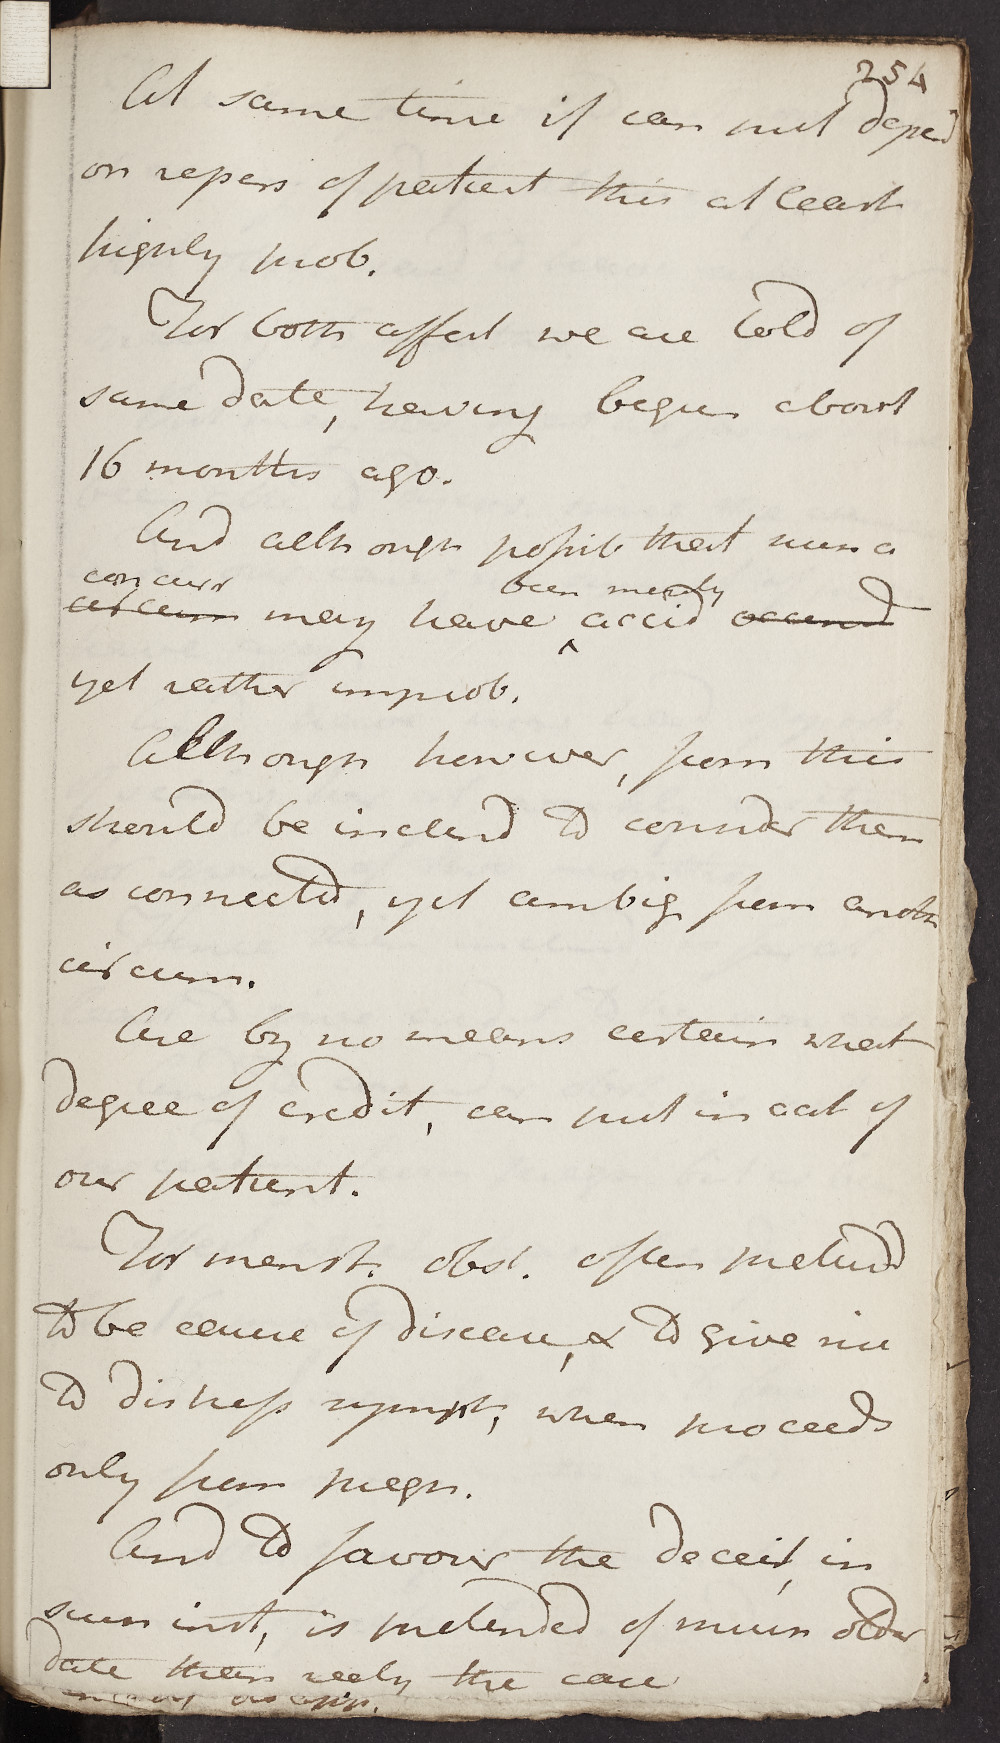 254
At same time if can put depend
on repers of patient this at least
highly prob.
For both affect we are told of
same date, having begun about
16 months ago.
And although possib that such a
concurr
circum may have ^ been merely accid occurred
yet rather improb.
Although however, from this
should be inclend to consider them
as connected, yet ambig from anoth
circum.
Are by no means certain what
degree of credit, can put in act of
our patient.
For menst. obst. often pretend
to be cause of disease, & to give rise
to distress sympt, when proceeds
only from pregn.
And to favour the deceit, in
such inst, is pretended of much older
date then realy the case